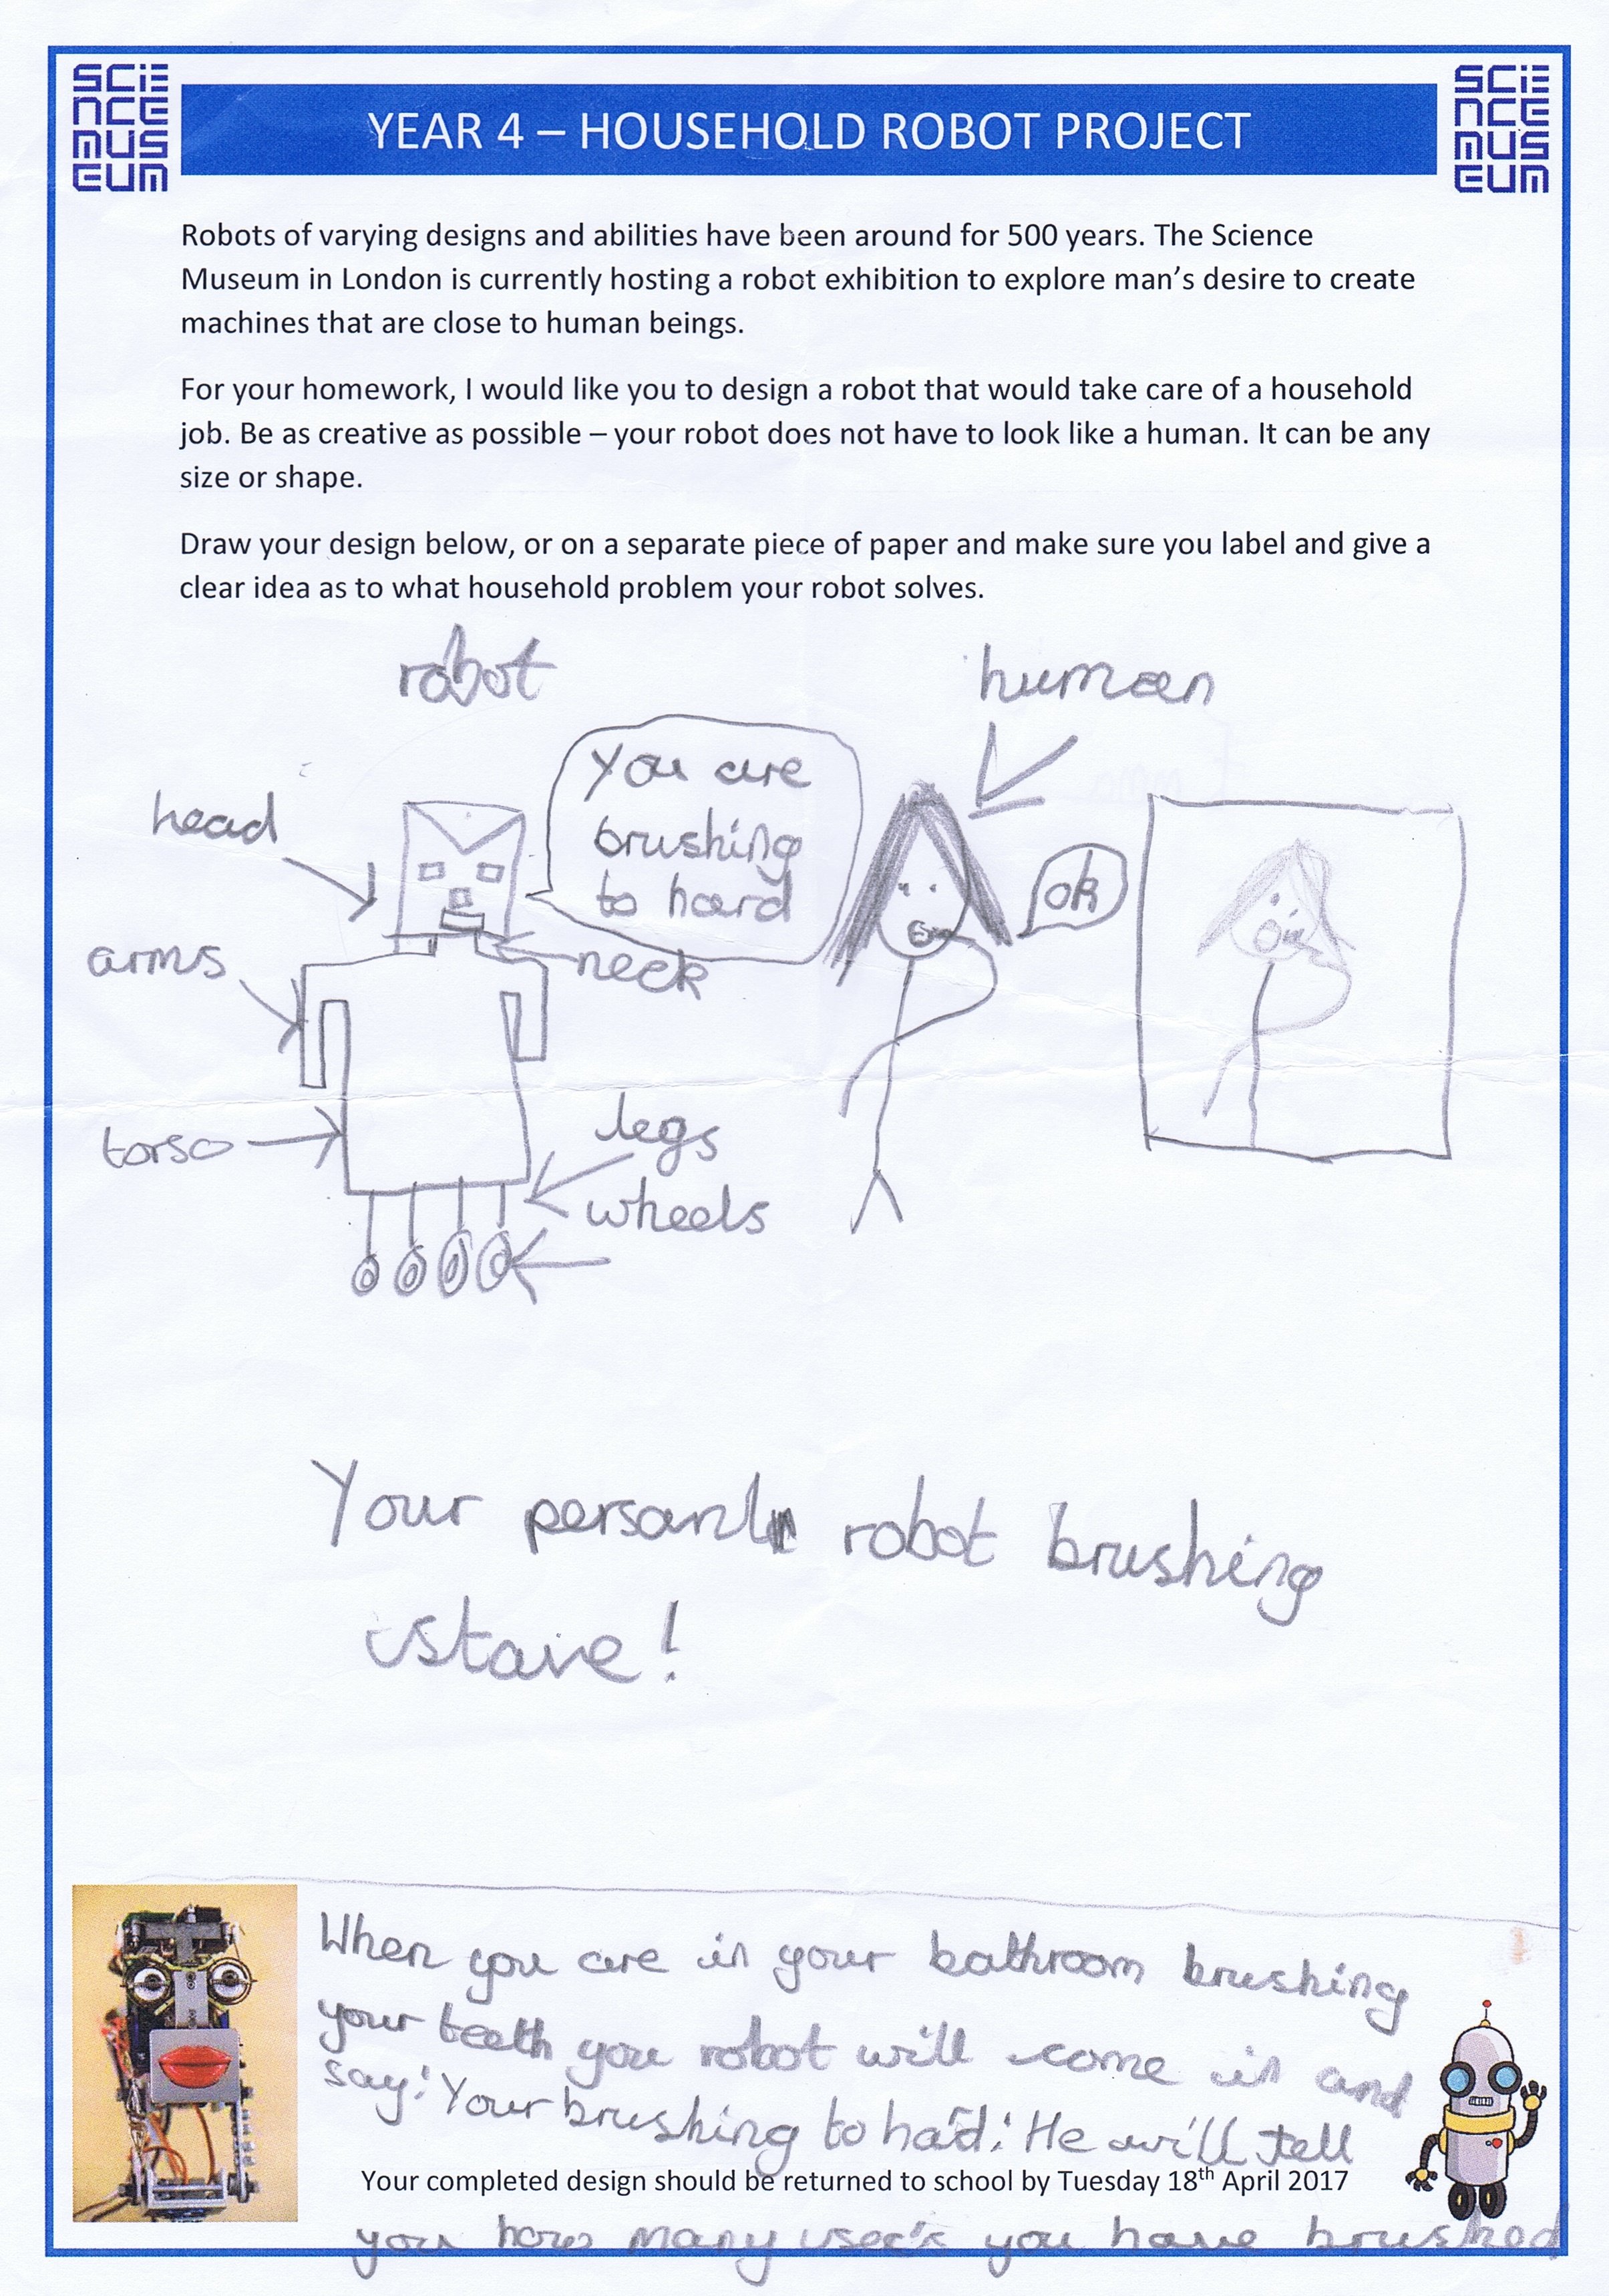 SCiE
NCE
MUS
EUM
YEAR 4 – HOUSEHOLD ROBOT PROJECT
SCiE
NCE
MUS
EUM
Robots of varying designs and abilities have been around for 500 years. The Science
Museum in London is currently hosting a robot exhibition to explore man’s desire to create
machines that are close to human beings.
For your homework, I would like you to design a robot that would take care of a household
job. Be as creative as possible – your robot does not have to look like a human. It can be any
size or shape.
Draw your design below, or on a separate piece of paper and make sure you label and give a
clear idea as to what household problem your robot solves.
robot
human
head
You are
brushing
to hard
ok
arms
neck
torso
legs
wheels
Your robot brushing
!
When you are in your bathroom brushing
your teeth you robot will come in and
say: Your brushing to hard: He will tell
Your completed design should be returned to school by Tuesday 18th April 2017
you how many you have brushed